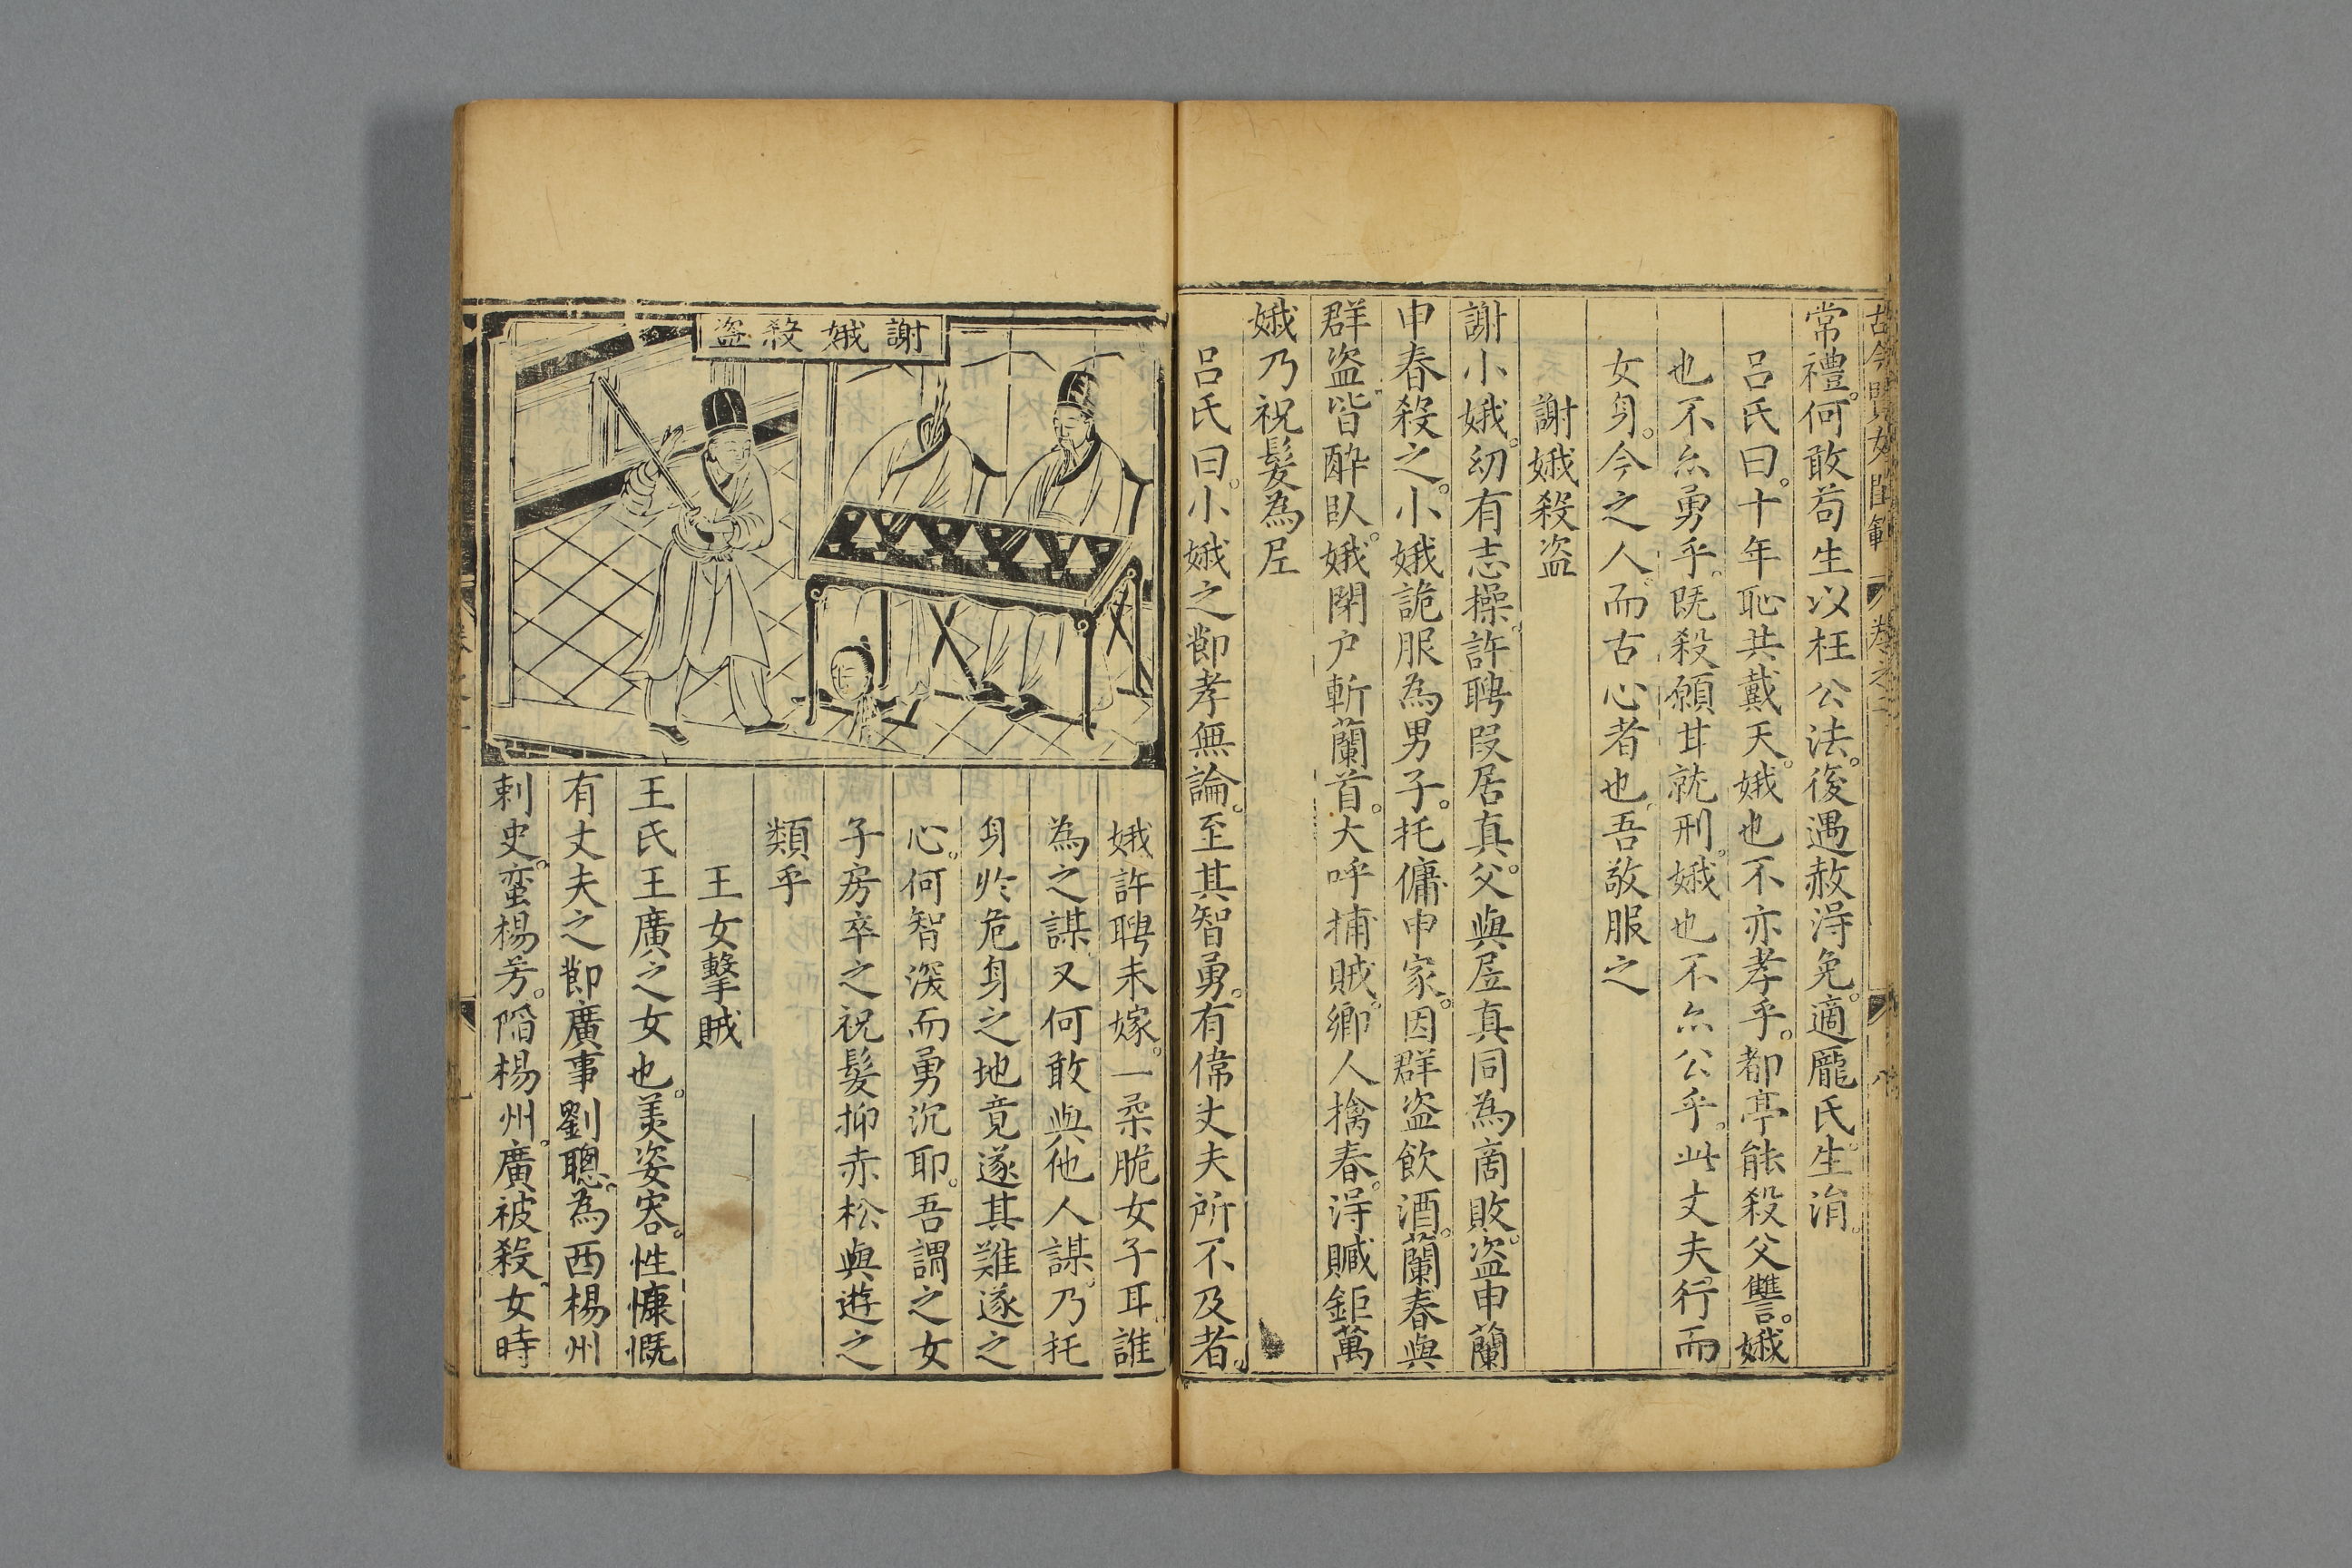 古今閨女閨範 卷之二 八
常禮何敢苟生以枉公法後遇赦淂免適龐氏生淯
呂氏曰十年恥共戴天娥也不亦孝乎都亭能殺父讐娥
也不亦勇乎既殺願甘就刑娥也不亦公乎此丈夫行而
女身今之人而古心者也吾敬服之
謝娥殺盜
謝小娥幼有志操許聘段居真父與居真同為商敗盜申蘭
申春殺之小娥詭服為男子托傭申家因群盜飲酒蘭春與
群盜皆醉臥娥閉户斬蘭首大呼捕賊鄉人擒春淂贓鉅萬
娥乃祝髮為尼
呂氏曰小娥之節孝無論至其智勇有偉丈夫所不及者
謝娥殺盜
娥許聘未嫁一柔脆女子耳誰
為之謀又何敢與他人謀乃托
身於危身之地竟遂其難遂之
心何智深而勇沉耶吾謂之女
子房卒之祝髮抑赤松與遊之
類乎
王女擊賊
王氏王廣之女也美姿容性慷慨
有丈夫之節廣事劉聰為西楊州
刺史蛮楊芳陷楊州廣被殺女時